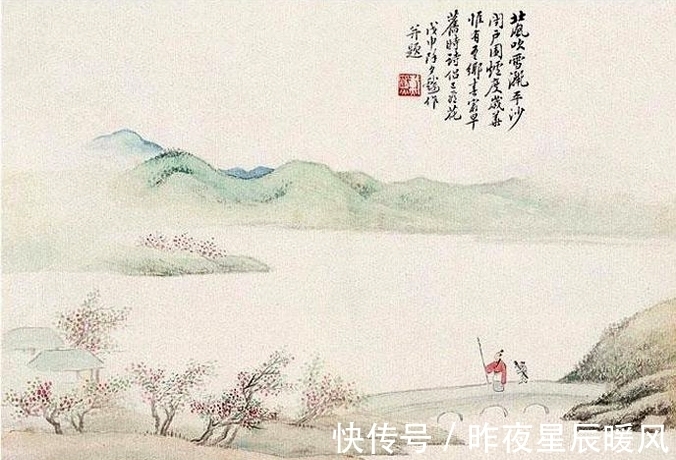 北風吹雪灑平沙
閉戶圍爐度歲華
惟有鄉春最早
舊時詩侶花
戊申除夕作
并題
快传号 / 昨夜星辰暖风